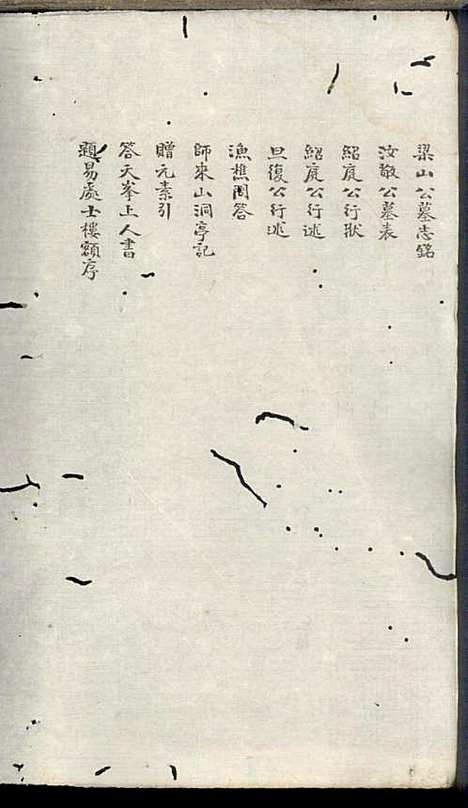 梁山公墓志銘
汝敬公墓表
紹庭公行狀
紹庭公行述
旦復公行述
漁樵閒答
師來山洞亭記
贈元素引
答天峯上人書
題易處士樓額序